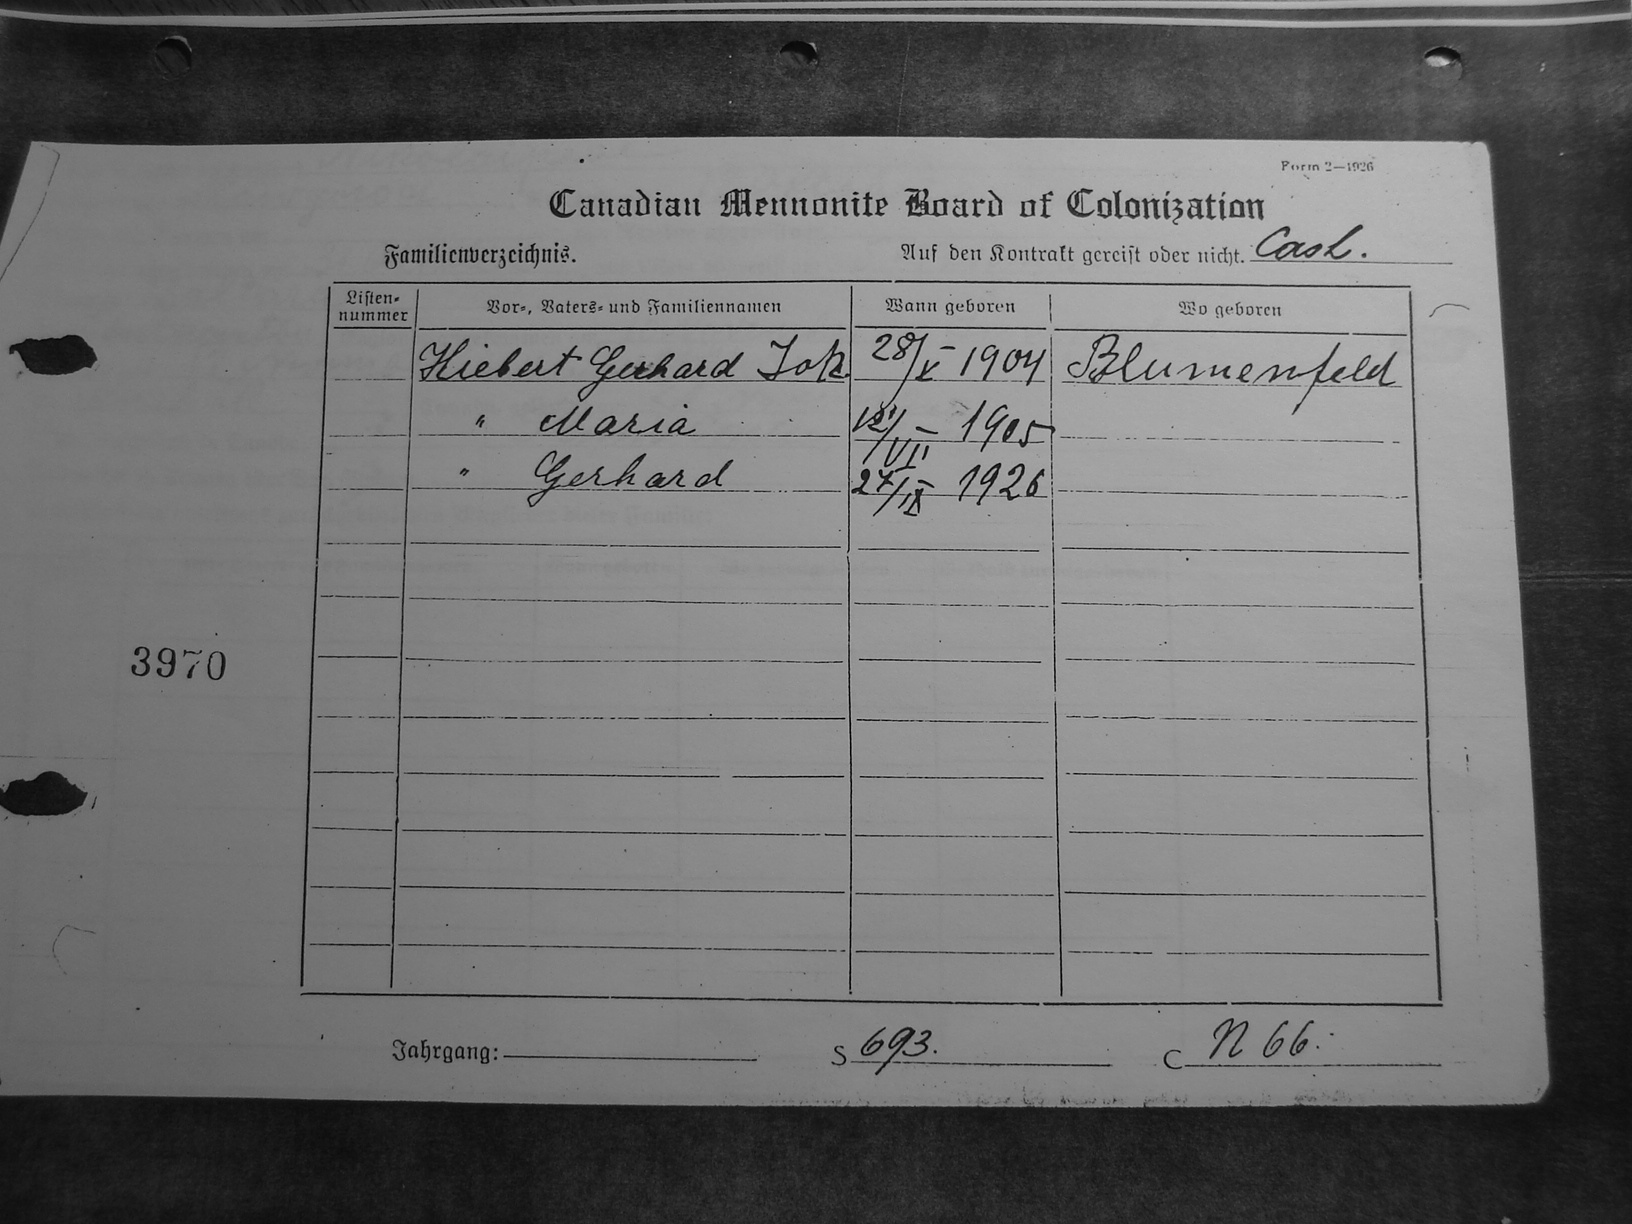 Form 2—1926
Canadian Mennonite Board of Colonization
Familienverzeichnis. Auf den Kontrakt gereist oder nicht. Cash.
Listen-nummer Vor-, Vaters- und Familiennamen Wann geboren Wo geboren
Kiebert Gerhard Joh. 28/X 1904 Blumenfeld
" Maria /VII 1905
" Gerhard 27/IX 1926
3970
Jahrgang: S 693. C N 66.